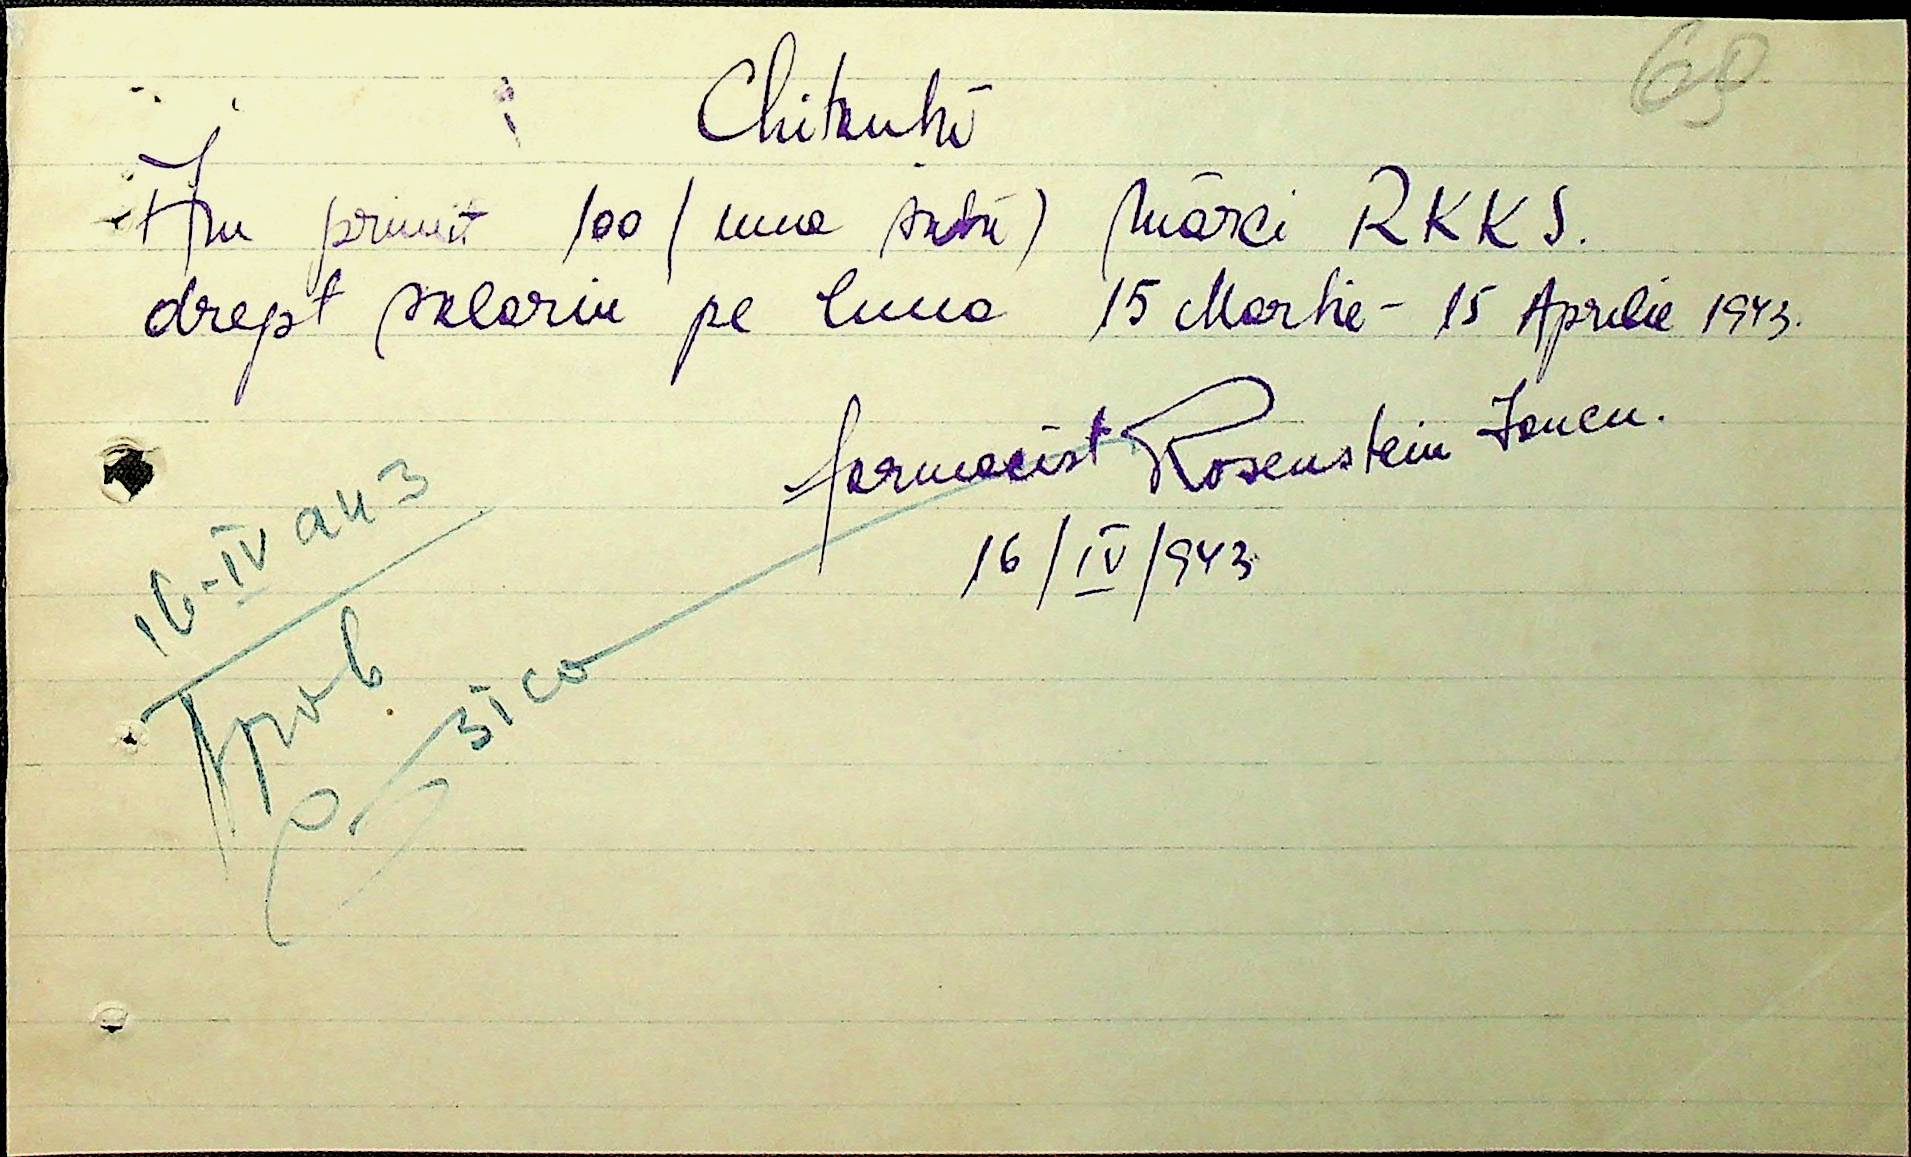 60
Chitanță
Am primit 100 (una sută) mărci RKKS.
drept salariu pe luna 15 Martie - 15 Aprilie 1943.
farmacist Rosenstein Iancu.
16/IV/943
16-IV an 3